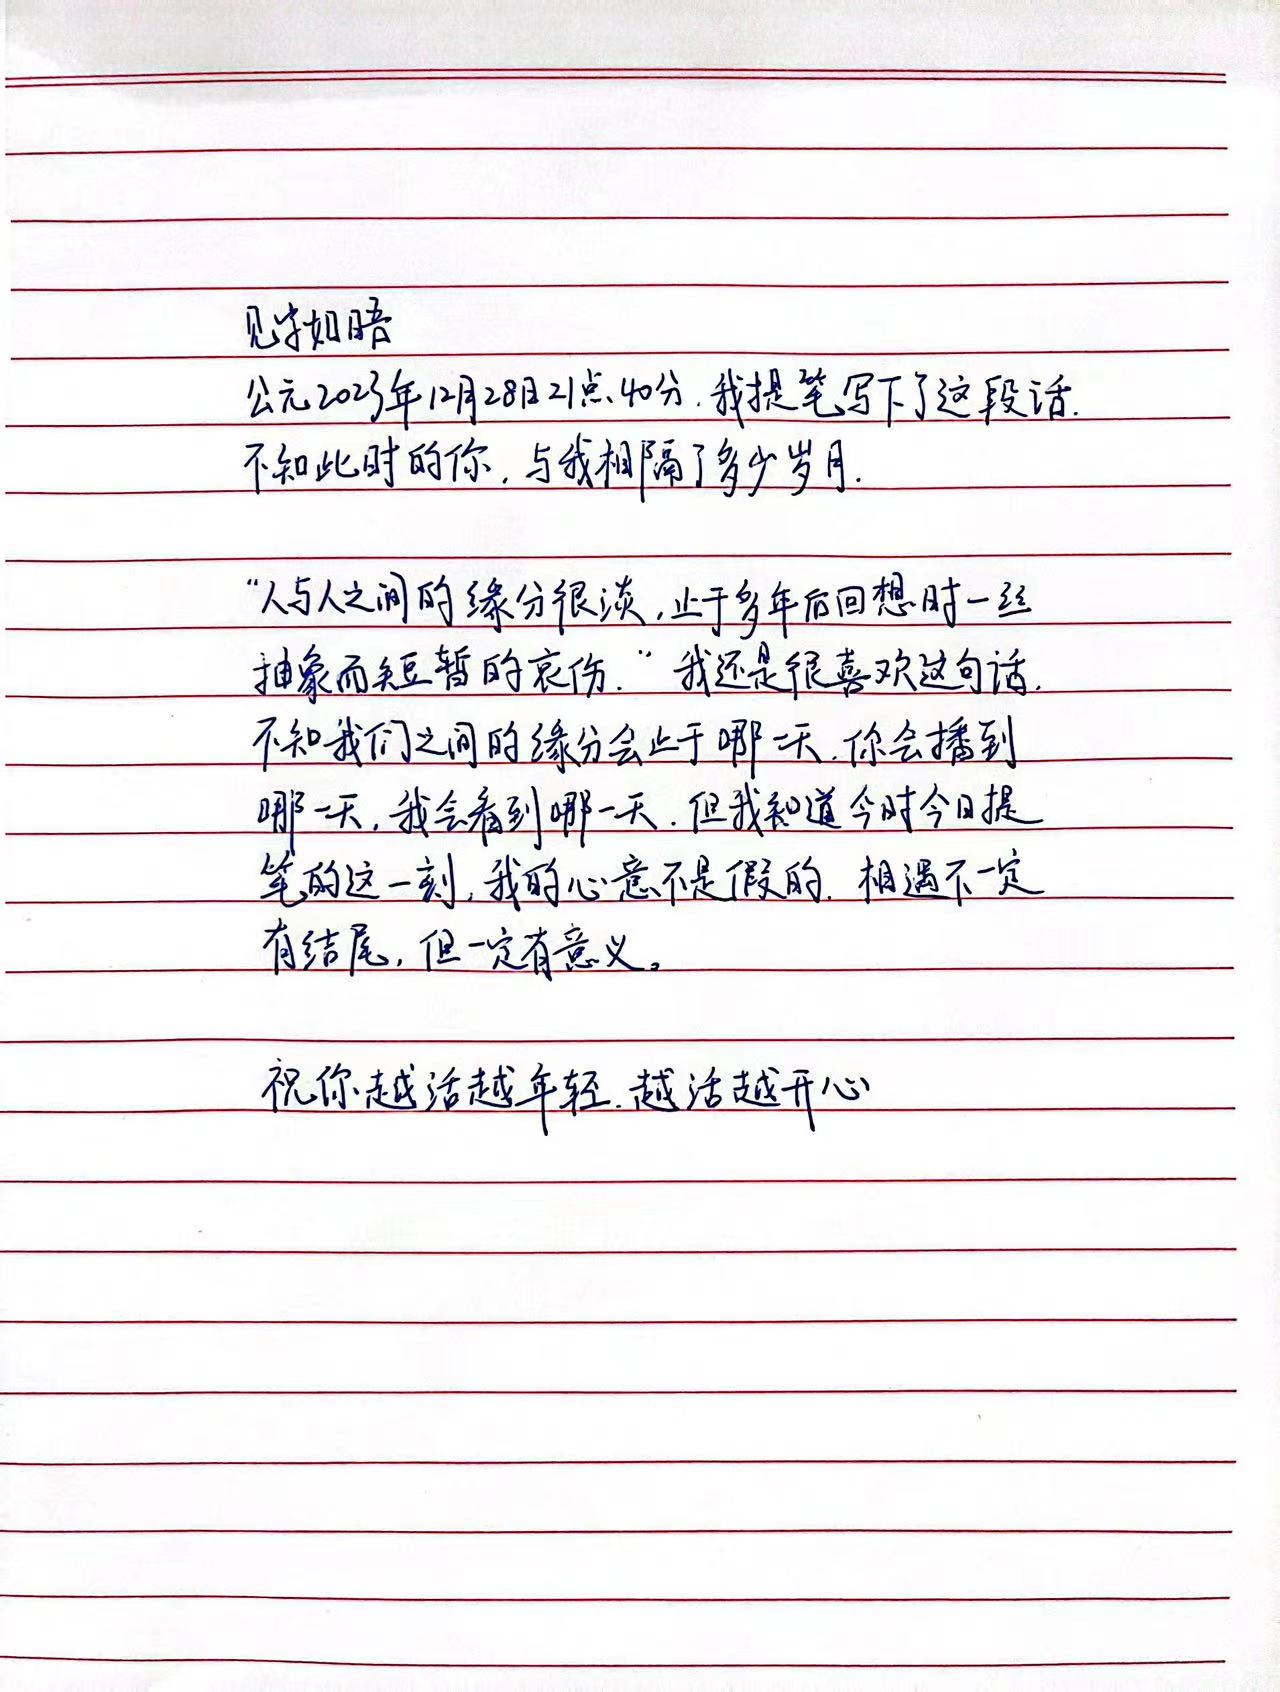 见字如晤
公元2023年12月28日21点40分.我提笔写下了这段话.
不知此时的你,与我相隔了多少岁月.
“人与人之间的缘分很淡,止于多年后回想时一丝
抽象而短暂的哀伤.”我还是很喜欢这句话.
不知我们之间的缘分会止于哪一天.你会播到
哪一天,我会看到哪一天.但我知道今时今日提
笔的这一刻,我的心意不是假的.相遇不一定
有结尾,但一定有意义。
祝你越活越年轻.越活越开心